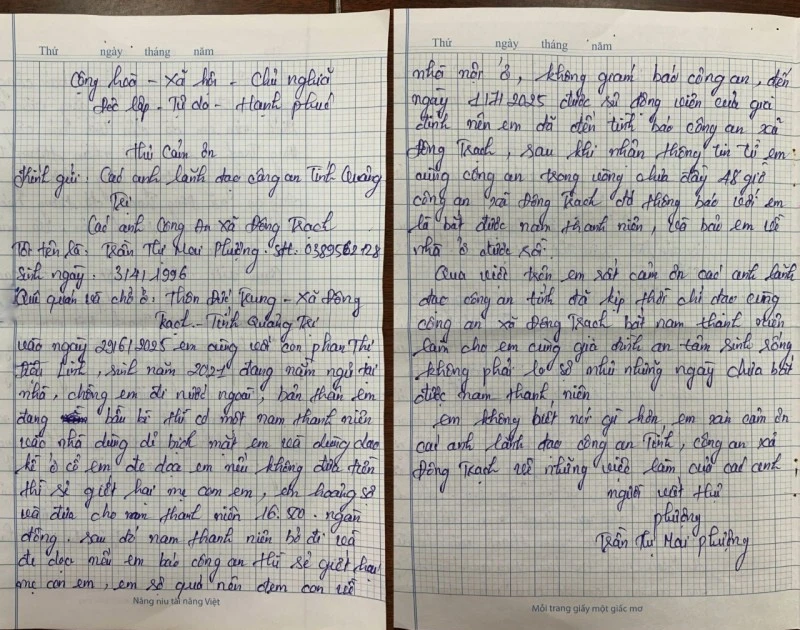 Thứ ngày tháng năm
Cộng hoà - Xã hội - Chủ nghĩa
Độc lập - Tự do - Hạnh phúc
Thư Cảm ơn
Kính gửi: Các anh lãnh đạo công an Tỉnh Quảng
Trị
Các anh Công An xã Đông Trạch
Tôi tên là: Trần Thị Mai Phượng. sđt. 0389562128
Sinh ngày. 3/4/1996
Quê quán và chỗ ở: Thôn Đức Trung - Xã Đông
Trạch - Tỉnh Quảng Trị
vào ngày 29/6/2025 em cùng với con phan Thị
Linh, sinh năm 2021 đang nằm ngủ tại
nhà, chồng em đi nước ngoài, bản thân em
đang bầu bì thì có một nam thanh niên
vào nhà dùng dẻ bịch mặt em và dùng dao
kề ở cổ em đe doạ em nếu không đưa tiền
thì sẽ giết hai mẹ con em, em hoảng sợ
và đưa cho nam thanh niên ngàn
đồng. sau đó nam thanh niên bỏ đi và
đe doạ nếu em báo công an thì sẽ giết hai
mẹ con em, em sợ quá nên đem con về
Nâng niu tài năng Việt
Thứ ngày tháng năm
nhà nội ở, không giám báo công an, đến
ngày 1/7/2025 được sự động viên của gia
đình nên em đã đến trình báo công an xã
Đông Trạch, sau khi nhận thông tin từ em
cùng công an trong vòng chưa đầy 48 giờ
công an xã Đông Trạch đã thông báo với em
là bắt được nam thanh niên, và bảo em về
nhà ở được rồi.
Qua việc trên em rất cảm ơn các anh lãnh
đạo công an tỉnh đã kịp thời chỉ đạo cùng
công an xã Đông Trạch bắt nam thanh niên
làm cho em cùng gia đình an tâm sinh sống
không phải lo sợ như những ngày chưa bắt
được nam thanh niên
em không biết nói gì hơn, em xin cảm ơn
các anh lãnh đạo công an Tỉnh, công an xã
Đông Trạch về những việc làm của các anh
người viết thư
phượng
Trần Thị Mai Phượng
Mỗi trang giấy một giấc mơ